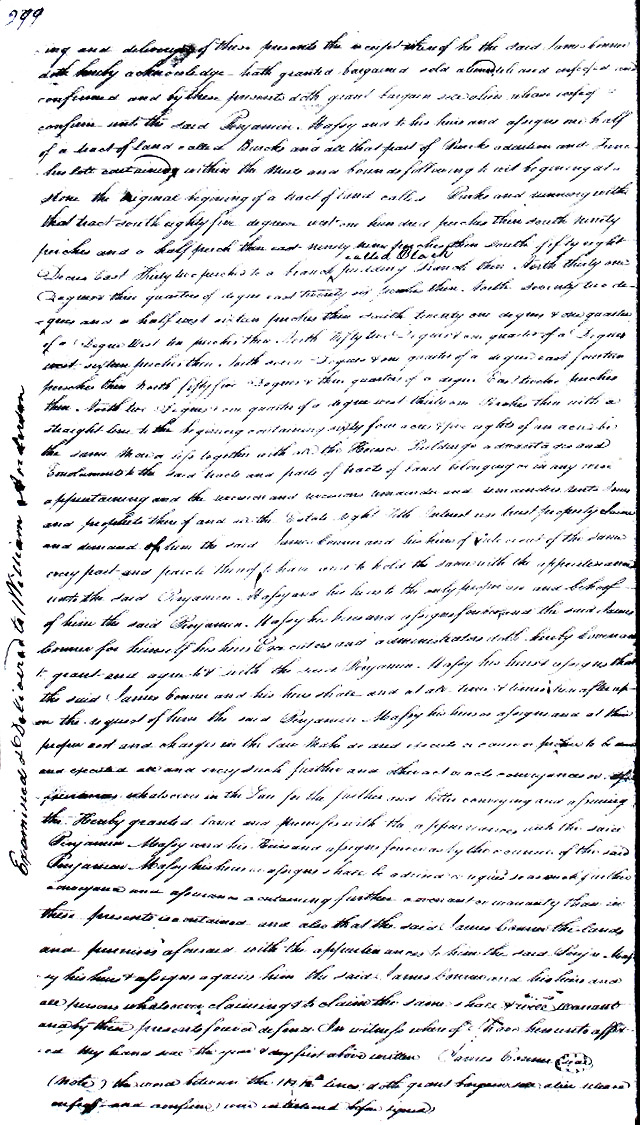 299
ing and delivery of these presents the receipt whereof he the said James Conner
doth hereby acknowledge hath granted bargained sold aliened and enfeoffed and
confirmed and by these presents doth grant bargain sell alien release enfeoff
confirm unto the said Benjamin Massy and to his heirs and assigns one half
of a tract of land called Burks and all that part of Burks addition and
his lott containing within the meets and bounds following to wit begining at a
stone the original begining of a tract of land called Burks and runing with
that tract south eighty five degrees west one hundred perches then south ninety
perches and a half perch then east ninety nine perches then south fifty eight
called Black
Degrees East Thirty two perches to a branch pudding branch then North thirty one
Degrees three quarters of degree east twenty six perches then North Seventy two de-
grees and a half west sixteen perches then south twenty one degrees & one quarter
of a Degree West ten perches then North fifty two Degrees & one quarter of a Degree
west sixteen perches then North seven Degrees & one quarter of a degree east fourteen
perches then North fifty five Degrees & three quarters of a degree East twelve perches
then North two Degrees & one quarter of a degree west thirty one Perches then with a
straight line to the begining containing sixty four acres & five eights of an acre be
the same more or less together with all the Houses Buildings advantages and
Emoluments to the said tracts and parts of tracts of land belonging or in any wise
appertaining and the reversion and reversions remainder and remainders rents issues
and profits thereof and all the Estate right Title Interest use trust property
and demand of him the said James Conner and his heirs of in & out of the same
every part and parcle thereof to have and to hold the same with the appurtenances
unto the said Benjamin Massy and his heirs to the only proper use and behoof
of him the said Benjamin Massy his heirs and assigns forever and the said James
Conner for himself his heirs Executors and administrators doth hereby Covenant
to grant and agree to & with the said Benjamin Massy his heirs & assigns that
the said James Conner and his heirs shall and at all time & times hereafter up-
on the request of him the said Benjamin Massy his heirs or assigns and at their
proper cost and charges in the Law make do and execute or cause or procure to be
and executed all and every such further and other act or acts conveyances or
whatsoever in the Law for the further and better conveying and assuring
the Hereby granted land and premises with the appurtenances unto the said
Benjamin Massy and his Heirs and assigns forever as by the council of the said
Benjamin Massy his heirs or assigns shall be advised or required so as such further
conveyance and assurance containing further covenant or warranty than in
these presents is contained and also that the said James Conner the lands
and premises aforesaid with the appurtenances to him the said Benja Mas-
sy his heirs & assigns against him the said James Conner and his heirs and
all persons whatsoever claiming or to claim the same shall & will warrant
and by these presents forever defend In witness whereof I have hereunto affix-
ed My hand seal the year & day first above written James Conner Seal
(Note) the word between the lines doth grant bargain sell alien release
enfeoff and confirm were interlined before signed
Examined & Delivered to William Anderson